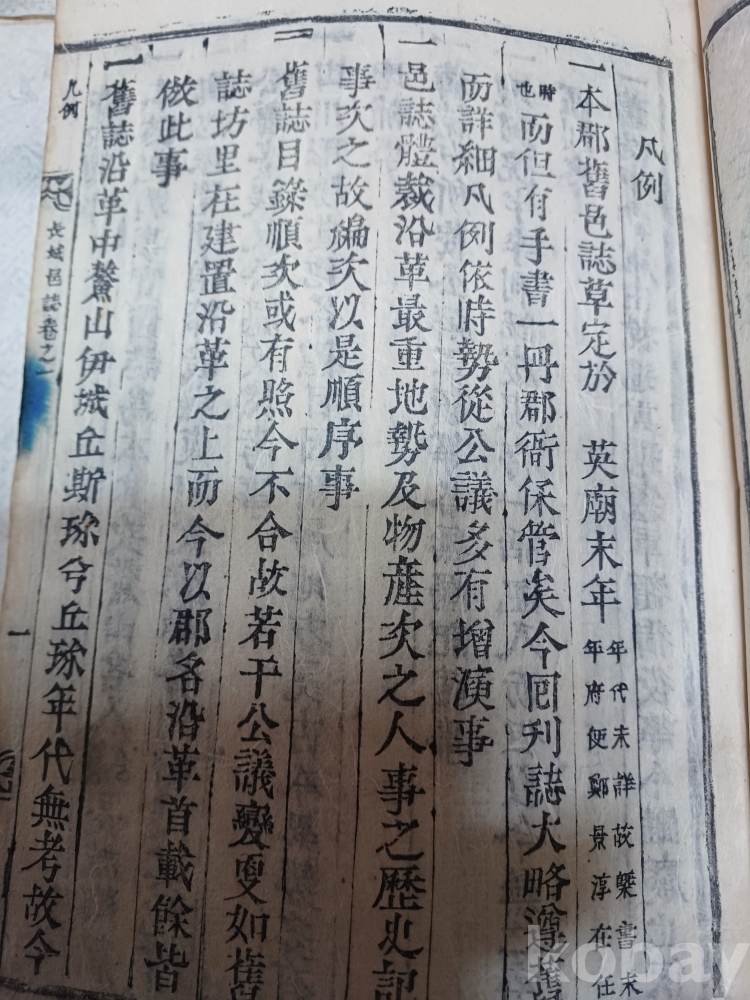 凡例
一本郡舊邑誌草定於 英廟末年 年代未詳故槩書末年府使鄭景淳在任
時也 而但有手書一冊郡衙保管矣今回刊誌大略遵舊
而詳細凡例依時勢從公議多有增演事
一邑誌體裁沿革最重地勢及物産次之人事之歷史記
事次之故編次以是順序事
一舊誌目錄順次或有照今不合故若干公議變更如舊
誌坊里在建置沿革之上而今以郡名沿革首載餘皆
倣此事
一舊誌沿革中鰲山伊城丘斯珎兮丘珎年代無考故今
凡例
長城邑誌卷之一
一
kobay